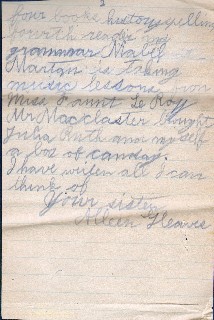 2
four books history spelling
fourth reader my
grammar Mabel
Martan is taking
music lessons from
Miss Faunt Le Roy
Mr Macclaster bought
Julia Ruth and my self
a box of canday.
I have writen all I can
think of
Your sister
Aileen Heaves